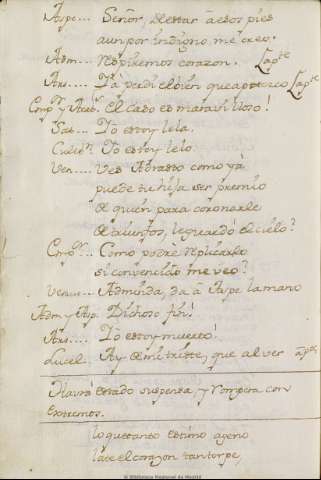 Aspe... Señor, vesar a esos pies
aun por indigno, me creo.
Adm... Respiremos corazon. Apte
Ars.... Ya perdi el bien que apetezco Apte
Cmpr y Aceb. El caso es maravilloso!
Sab... Yo estoy lela.
Culebn. Yo estoy lelo
Ven.... Ves Adrasto como ya
puede tu hija ser premio
de quien para coronarle
de triunfos, le guardó el cielo?
Cmpr... Como podrè replicarlo
si convencido me veo?
Venus.. Adminda, da à Aspe la mano
Adm y Asp. Dichoso fin!
Ars.... Yo estoy muerto!
Lucel.. Ay de mi triste, que al ver apte
Havrá estado suspensa, y rompera con
extremos.
lo que tanto estimo ageno
late el corazon tan torpe,
© Biblioteca Nacional de Madrid